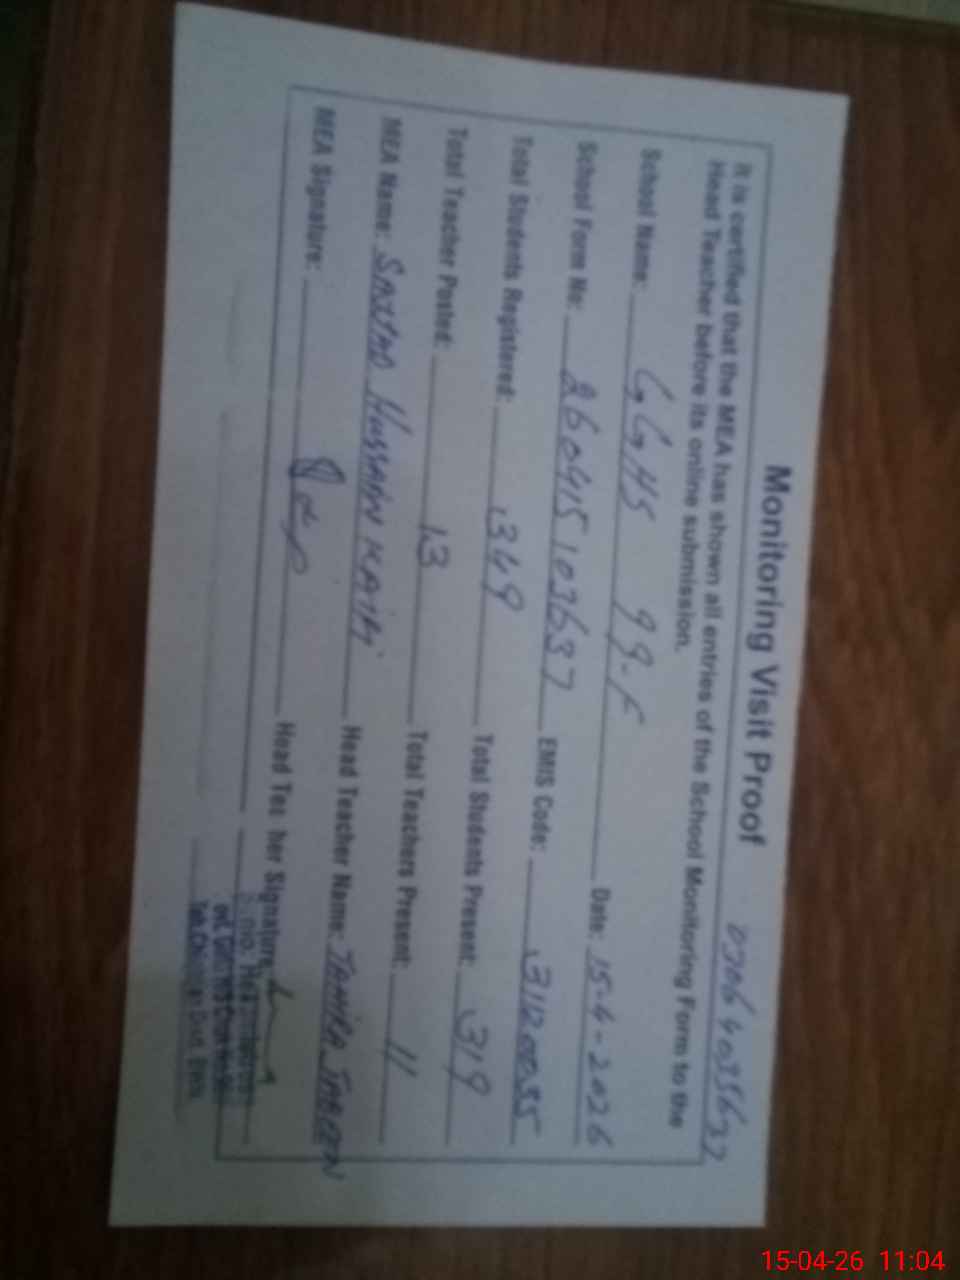 Monitoring Visit Proof
It is certified that the MEA has shown all entries of the School Monitoring Form to the
Head Teacher before its online submission.
School Name: GGHS 99-F Date: 15-4-2026
School Form No: 260415103637 EMIS Code: 31120035
Total Students Registered: 349 Total Students Present: 319
Total Teacher Posted: 13 Total Teachers Present: 11
MEA Name: SAJJAD HUSSAIN KAIFI Head Teacher Name: TAHIRA JABEEN
MEA Signature: Head Teacher Signature:
15-04-26 11:04